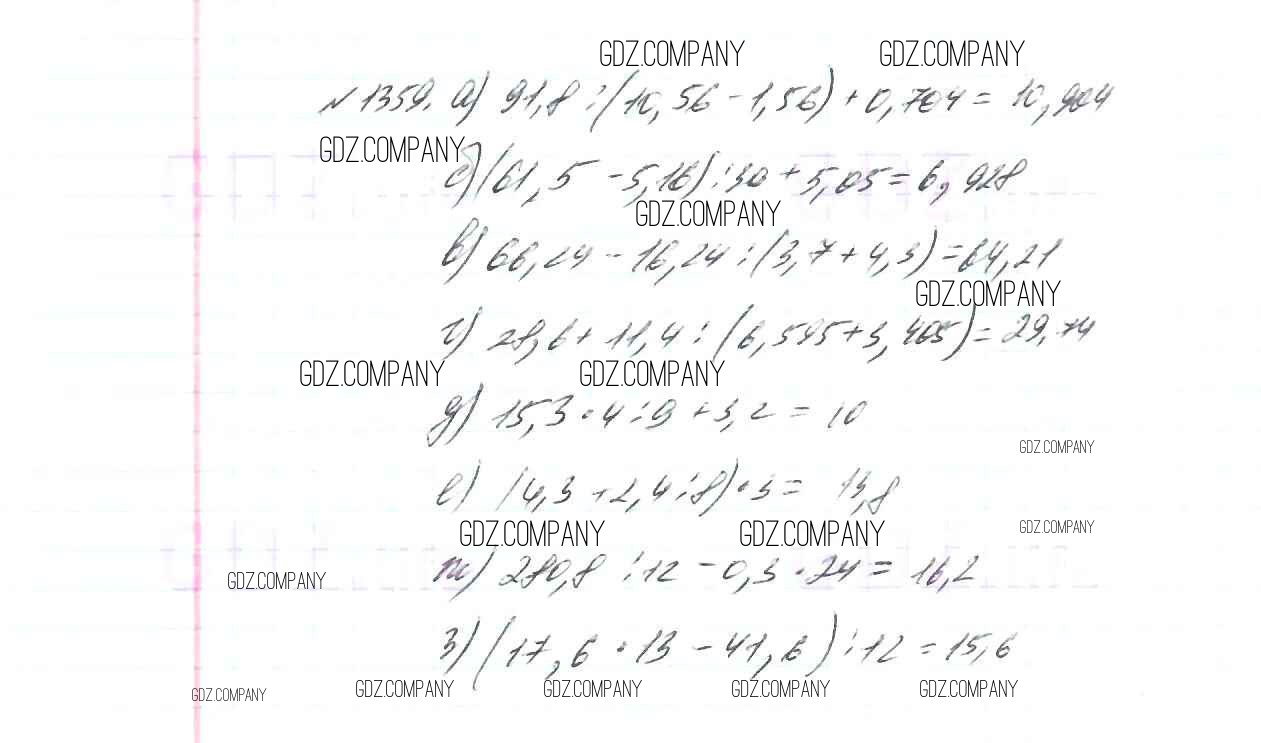 GDZ.COMPANY GDZ.COMPANY
№1359. а) 91,8 : (10,56 - 1,56) + 0,704 = 10,904
GDZ.COMPANY
б) (61,5 - 5,16) : 30 + 5,05 = 6,928
GDZ.COMPANY
в) 66,24 - 16,24 : (3,7 + 4,3) = 64,21
GDZ.COMPANY
г) 28,6 + 11,4 : (6,595 + 3,405) = 29,74
GDZ.COMPANY GDZ.COMPANY
д) 15,3 · 4 : 9 + 3,2 = 10
GDZ.COMPANY
е) (4,3 + 2,4 : 8) · 3 = 13,8
GDZ.COMPANY GDZ.COMPANY GDZ.COMPANY
GDZ.COMPANY
ж) 280,8 : 12 - 0,3 · 24 = 16,2
з) (17,6 · 13 - 41,6) : 12 = 15,6
GDZ.COMPANY GDZ.COMPANY GDZ.COMPANY GDZ.COMPANY GDZ.COMPANY